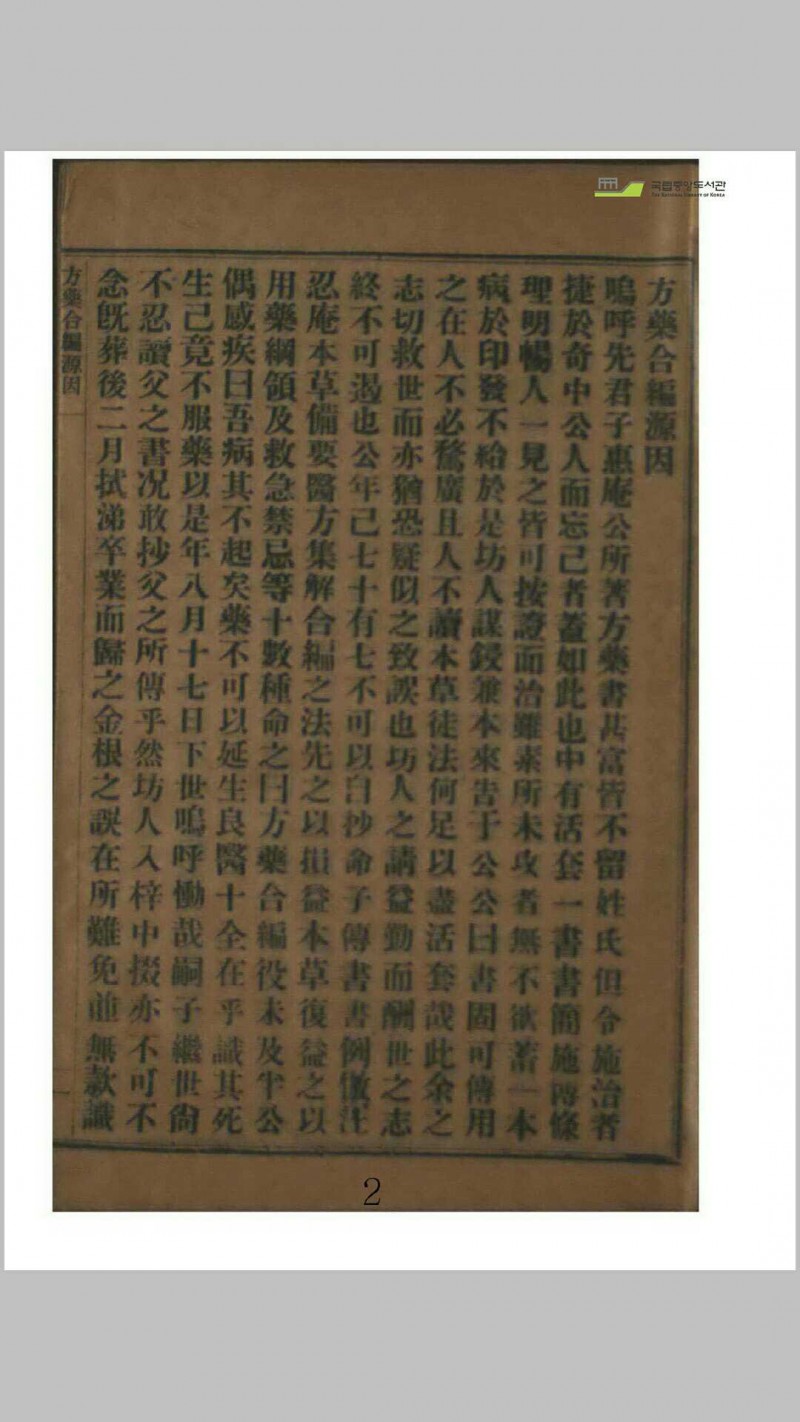 국립중앙도서관
THE NATIONAL LIBRARY OF KOREA
方藥合編源因
嗚呼先君子惠庵公所著方藥書甚富皆不留姓氏但令施治者
捷於奇中公人而忘己者蓋如此也中有活套一書書簡施溥條
理明暢人一見之皆可按證而治雖素所未攻者無不欲蓄一本
病於印發不給於是坊人謀鋟兼本來告于公公曰書固可傳用
之在人不必騖廣且人不讀本草徒法何足以盡活套哉此余之
志切救世而亦猶恐疑似之致誤也坊人之請益勤而酬世之志
終不可遏也公年已七十有七不可以自抄命子傳書書例倣汪
忍庵本草備要醫方集解合編之法先之以損益本草復益之以
用藥綱領及救急禁忌等十數種命之曰方藥合編役未及半公
偶感疾曰吾病其不起矣藥不可以延生良醫十全在乎識其死
生己竟不服藥以是年八月十七日下世嗚呼慟哉嗣子繼世尙
不忍讀父之書况敢抄父之所傳乎然坊人入梓中掇亦不可不
念旣葬後二月拭涕卒業而歸之金根之誤在所難免並無款識
方藥合編源因
2